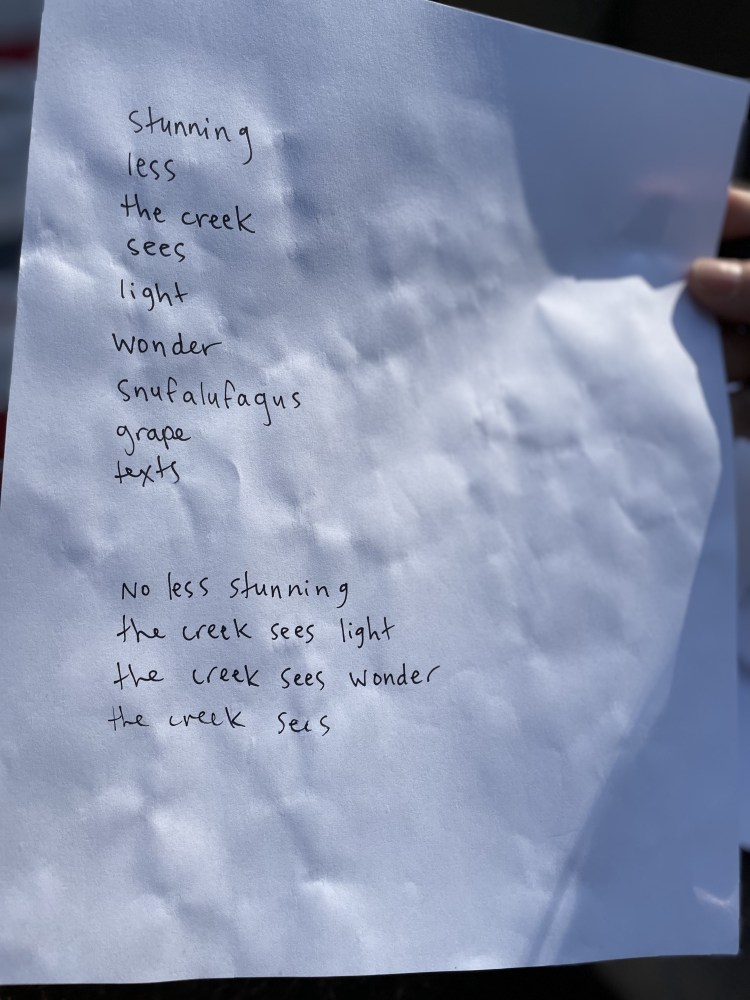 Stunning
less
the creek
sees
light
wonder
Snufalufagus
grape
texts
No less stunning
the creek sees light
the creek sees wonder
the creek sees